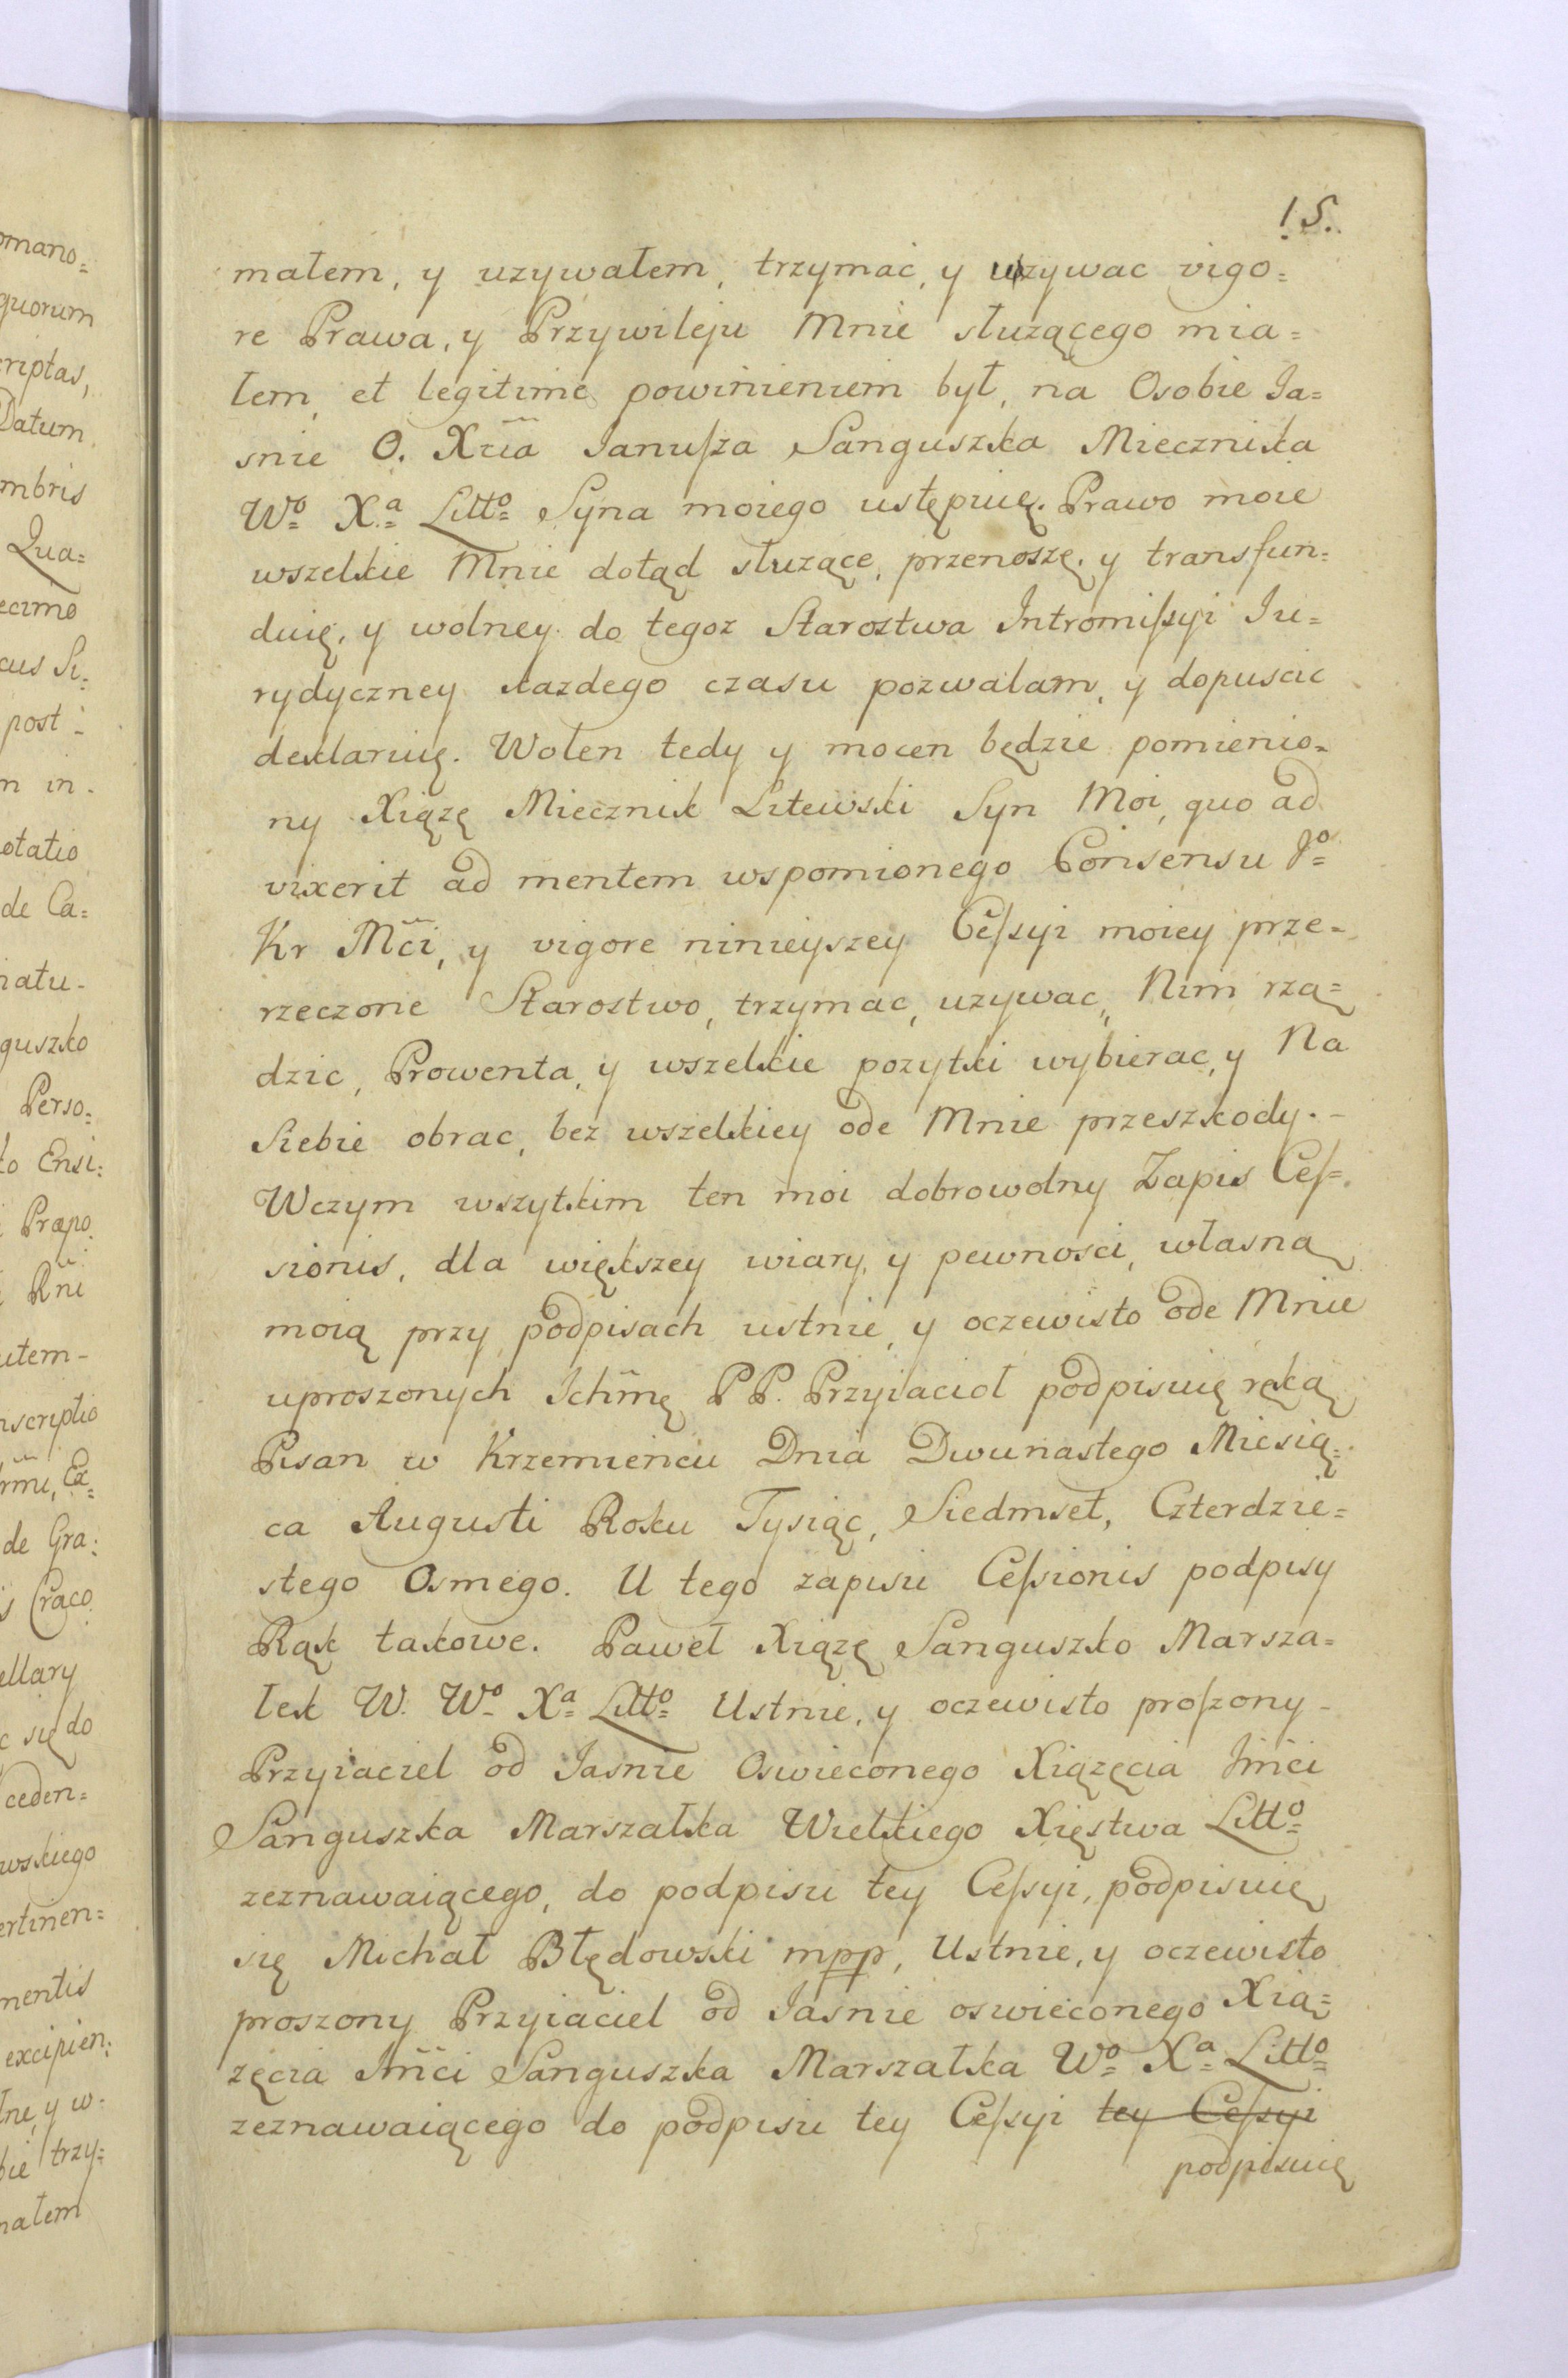 omano=
quorum
criptas,
Datum
mbris
Qua=
ecimo
cus Si=
post
m in
otatio
de Ca=
natu-
guszko
Perso=
to Ensi=
Præpo
Rñi
utem-
nscriptio
Ex=
de Gra=
Craco
ellary
c się do
ceden=
wskiego
ertinen=
mentis
excipien=
y w=
bie trzy=
małem
15.
małem, y uzywałem, trzymać, y uzywac vigo=
re Prawa, y Przywileju Mnie słuzącego mia=
łem, et legitime powinieniem był, na Osobie Ja=
snie O. Xcia Januſza Sanguszka Miecznika
Wº= Xª= Littº= Syna moiego ustępuię. Prawo moie
wszelkie Mnie dotąd słuzące, przenoszę, y transfun=
duię, y wolney do tegoz Starostwa Intromiſsyi Ju=
rydyczney kazdego czasu pozwalam, y dopuscic
deklaruię. Wolen tedy y mocen będzie pomienio=
ny Xiązę Miecznik Litewski Syn Moi, quo ad
vixerit ad mentem wspomionego Consensu Jº=
Kr Mc̃i, y vigore ninieyszey Ceſsyi moiey prze=
rzeczone Starostwo, trzymac, uzywac, Nim rzą=
dzic, Prowenta, y wszelkie pozytki wybierac, y Na
Siebie obrac, bez wszelkiey ode Mnie przeszkody.-
Wczym wszytkim ten moi dobrowolny Zapis Ceſ=
sionis, dla większey wiary, y pewnosci, własną
moią przy podpisach ustnie, y oczewisto ode Mnie
uproszonych Ichm̃ę PP. Przyiacioł podpisuię ręką
Pisan w Krzemieńcu Dnia Dwunastego Miesią=
ca Augusti Roku Tysiąc, Siedmset, Czterdzie=
stego Osmego. U tego zapisu Ceſsionis podpisy
Rąk takowe. Paweł Xiązę Sanguszko Marsza=
łek W. Wº= Xª= Littº= Ustnie, y oczewisto proſzony-
Przyiaciel od Jasnie Oswieconego Xiązęcia Jm̃ci
Sanguszka Marszałka Wielkiego Xięstwa Littº=
zeznawaiącego, do podpisu tey Ceſsyi, podpisuię
się Michał Błędowski mpp, Ustnie, y oczewisto
proszony Przyiaciel od Jasnie oswieconego Xią=
zęcia Jm̃ci Sanguszka Marszałka Wº= Xª= Littº=
zeznawaiącego do podpisu tey Ceſsyi tey Ceſsyi
podpisuię